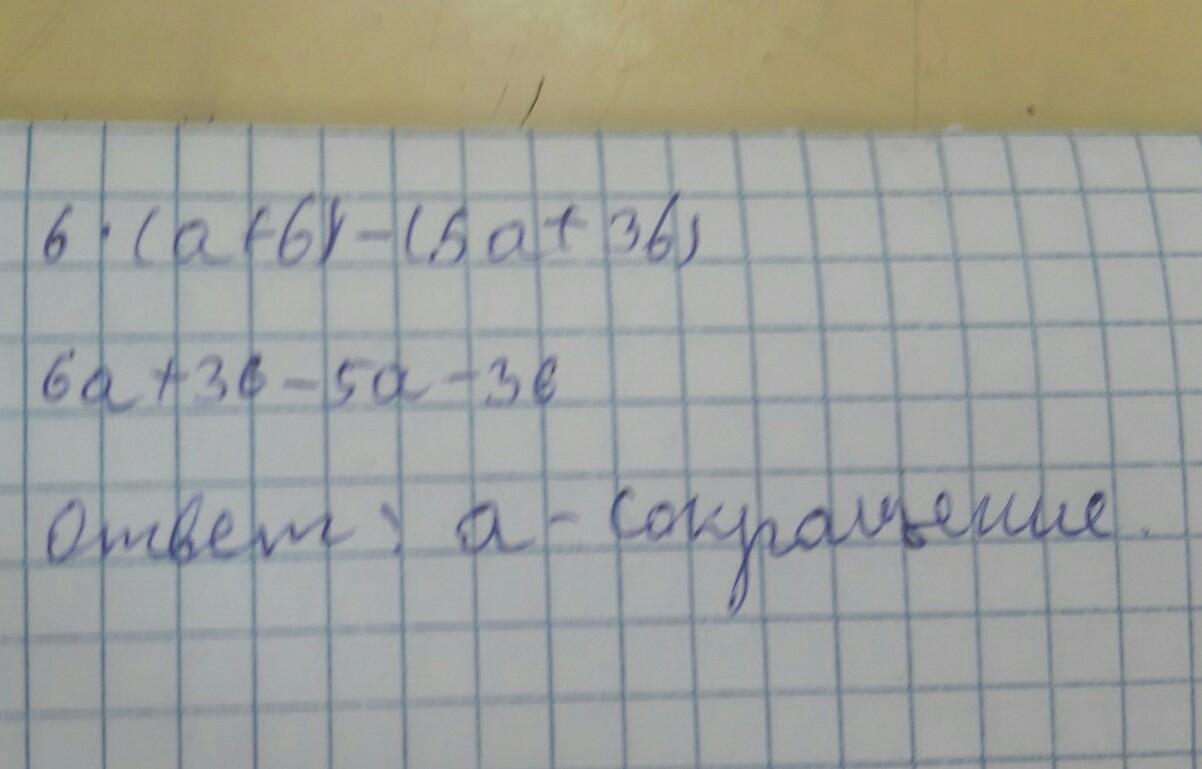 6·(a+6)-(5a+36)
6a+36-5a-36
Ответ: a - сокращение.